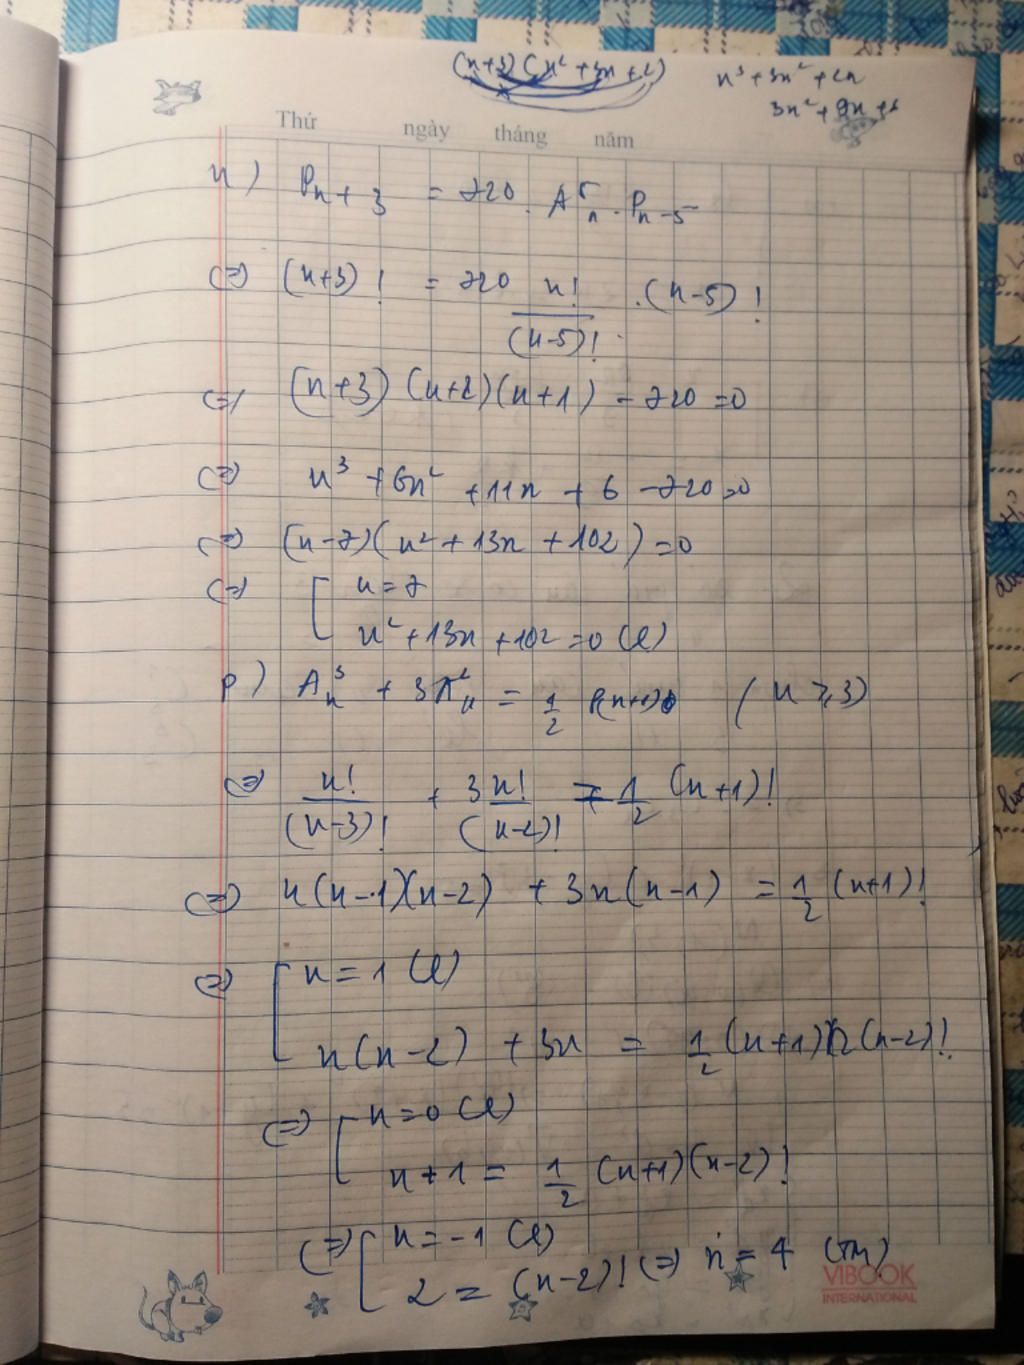 (n+3)(n² + 3n + 2)
n³ + 3n² + 2n
3n² + 9n + 6
Thứ ngày tháng năm
n) Pn+3 = 720. A⁵n . Pn-5
(=) (n+3)! = 720 n!/(n-5)! . (n-5)!
(=) (n+3)(n+2)(n+1) - 720 = 0
(=) n³ + 6n² + 11n + 6 - 720 = 0
(=) (n-7)(n² + 13n + 102) = 0
(=) [ n = 7
n² + 13n + 102 = 0 (l)
p) A³n + 3A²n = 1/2 P(n+1) (n ≥ 3)
(=) n!/(n-3)! + 3n!/(n-2)! = 1/2 (n+1)!
(=) n(n-1)(n-2) + 3n(n-1) = 1/2 (n+1)!
(=) [ n = 1 (l)
n(n-2) + 3n = 1/2 (n+1)n(n-2)!
(=) [ n = 0 (l)
n + 1 = 1/2 (n+1)(n-2)!
(=) [ n = -1 (l)
2 = (n-2)! (=) n = 4 (TM)
VIBOOK
INTERNATIONAL